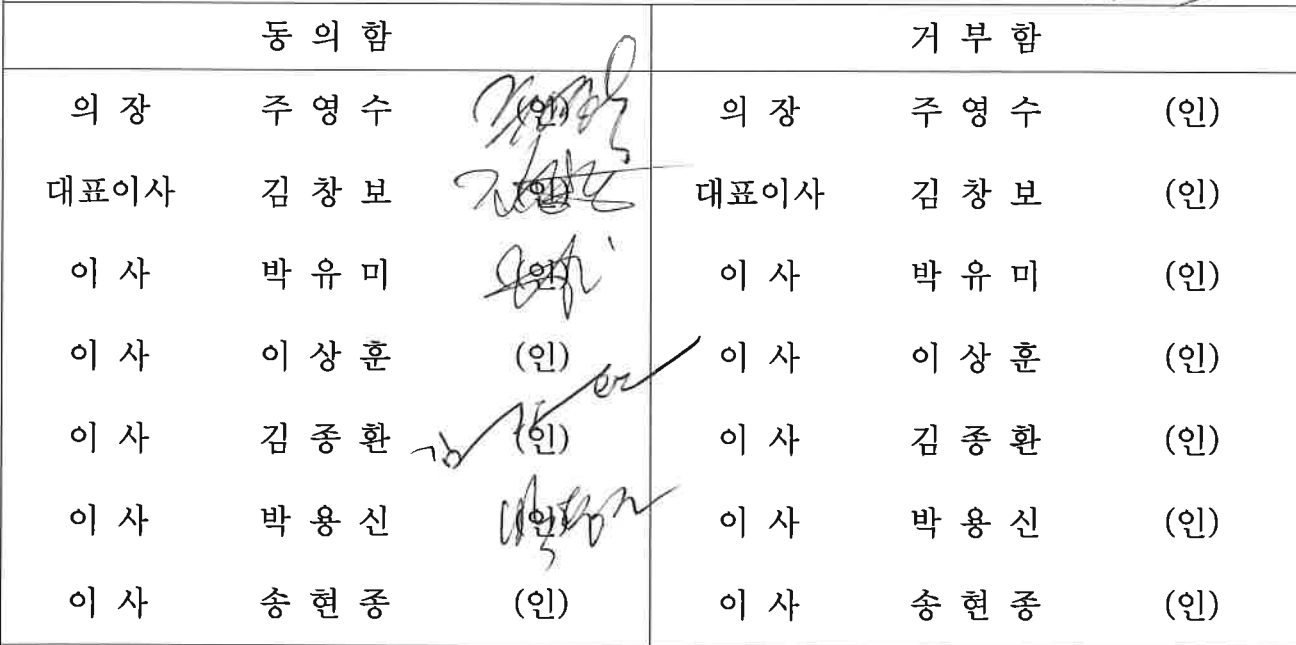 동 의 함 거 부 함
의 장 주 영 수 (인) 의 장 주 영 수 (인)
대표이사 김 창 보 (인) 대표이사 김 창 보 (인)
이 사 박 유 미 (인) 이 사 박 유 미 (인)
이 사 이 상 훈 (인) 이 사 이 상 훈 (인)
이 사 김 종 환 (인) 이 사 김 종 환 (인)
이 사 박 용 신 (인) 이 사 박 용 신 (인)
이 사 송 현 종 (인) 이 사 송 현 종 (인)